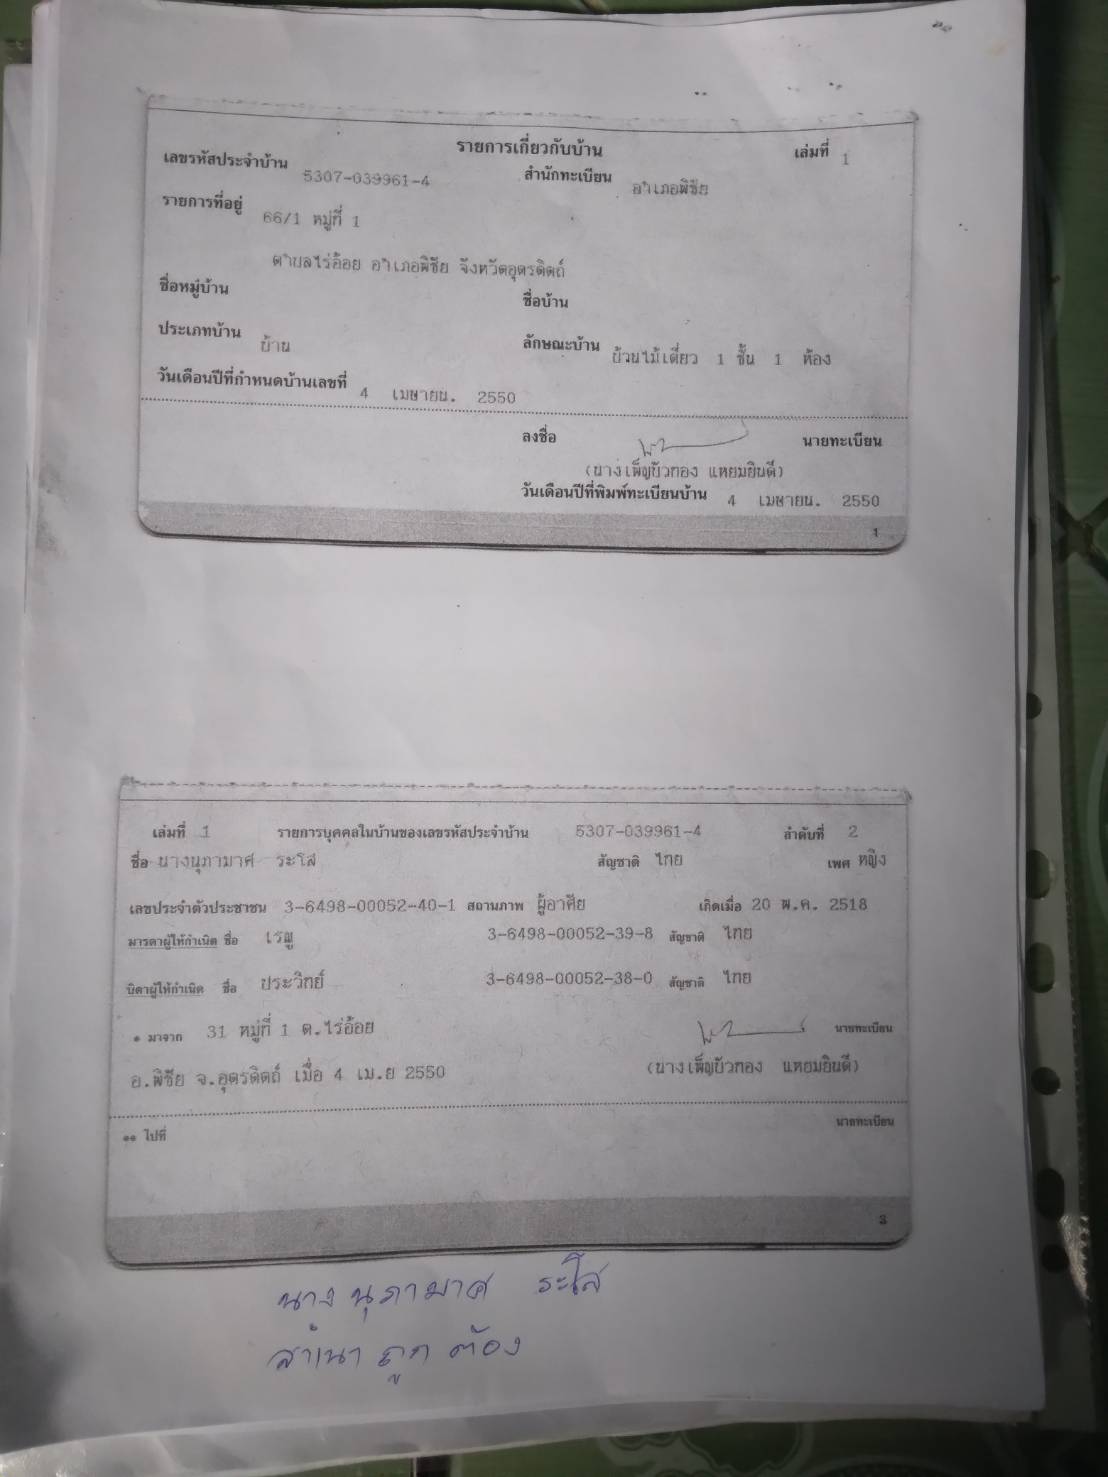 รายการเกี่ยวกับบ้าน เล่มที่ 1
เลขรหัสประจำบ้าน 5307-039961-4 สำนักทะเบียน อำเภอพิชัย
รายการที่อยู่ 66/1 หมู่ที่ 1
ตำบลไร่อ้อย อำเภอพิชัย จังหวัดอุตรดิตถ์
ชื่อหมู่บ้าน ชื่อบ้าน
ประเภทบ้าน บ้าน ลักษณะบ้าน บ้านไม้เดี่ยว 1 ชั้น 1 ห้อง
วันเดือนปีที่กำหนดบ้านเลขที่ 4 เมษายน. 2550
ลงชื่อ นายทะเบียน
(นางเพ็ญบัวทอง แหยมยินดี)
วันเดือนปีที่พิมพ์ทะเบียนบ้าน 4 เมษายน. 2550
1
เล่มที่ 1 รายการบุคคลในบ้านของเลขรหัสประจำบ้าน 5307-039961-4 ลำดับที่ 2
ชื่อ นางนุภามาศ ระโส สัญชาติ ไทย เพศ หญิง
เลขประจำตัวประชาชน 3-6498-00052-40-1 สถานภาพ ผู้อาศัย เกิดเมื่อ 20 พ.ค. 2518
มารดาผู้ให้กำเนิด ชื่อ เรณู 3-6498-00052-39-8 สัญชาติ ไทย
บิดาผู้ให้กำเนิด ชื่อ ประวิทย์ 3-6498-00052-38-0 สัญชาติ ไทย
* มาจาก 31 หมู่ที่ 1 ต.ไร่อ้อย นายทะเบียน
อ.พิชัย จ.อุตรดิตถ์ เมื่อ 4 เม.ย 2550 (นางเพ็ญบัวทอง แหยมยินดี)
** ไปที่ นายทะเบียน
3
นาง นุภามาศ ระโส
สำเนา ถูก ต้อง